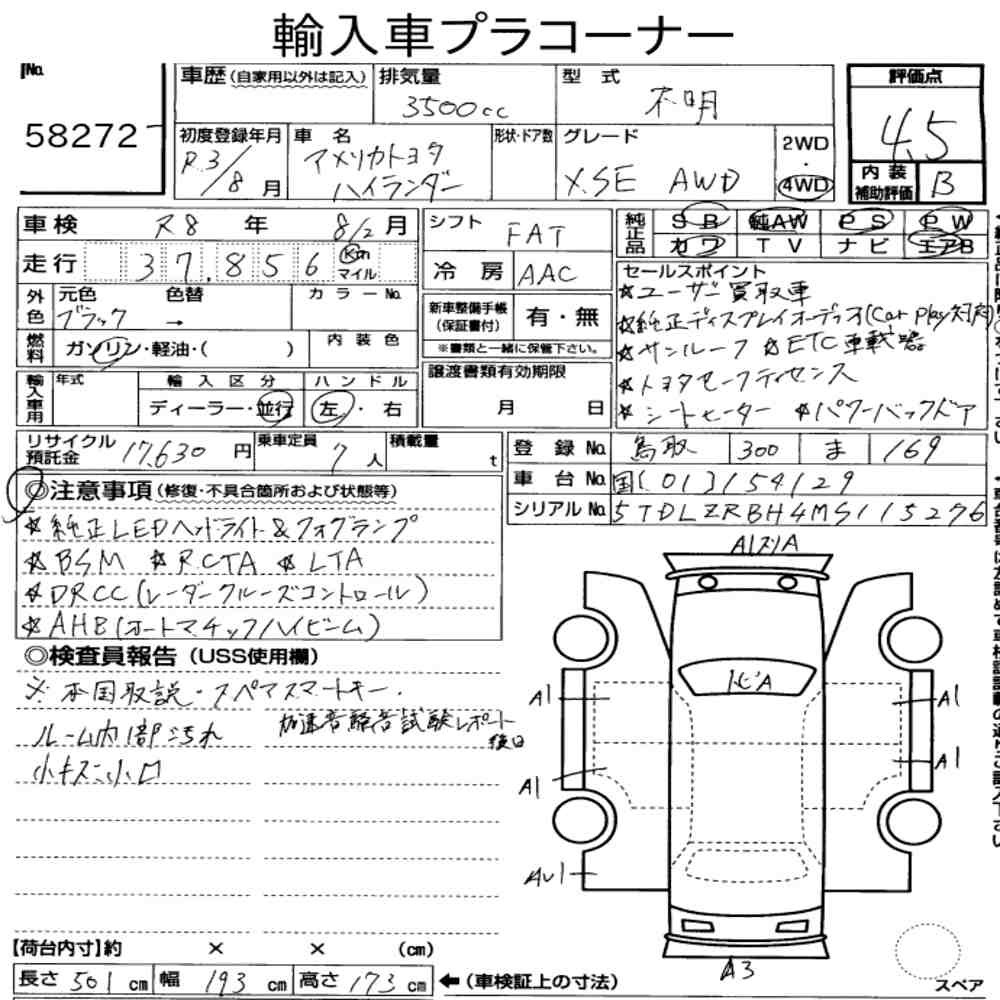 輸入車プラコーナー
No.
58272
車歴 (自家用以外は記入)
排気量
3500cc
型式
不明
評価点
4.5
内装
補助評価
B
初度登録年月
R.3/8月
車名
アメリカトヨタ
ハイランダー
形状・ドア数
グレード
XSE AWD
2WD
・
4WD
車検 R8 年 8/2 月
走行 37,856 Km マイル
外色
元色 色替 カラーNo.
ブラック →
燃料
ガソリン・軽油・( )
内装色
輸入車用
年式
輸入区分
ディーラー・並行
ハンドル
左・右
シフト FAT
冷房 AAC
新車整備手帳
(保証書付)
有・無
※書類と一緒に保管下さい。
譲渡書類有効期限
月 日
純正品
SB 純AW PS PW
カワ TV ナビ エアB
セールスポイント
☆ユーザー買取車
☆純正ディスプレイオーディオ(Car play対応)
☆サンルーフ ☆ETC車載器
☆トヨタセーフティセンス
☆シートヒーター ☆パワーバックドア
リサイクル
預託金
17,630 円
乗車定員 7 人
積載量 t
登録No. 鳥取 300 ま 169
車台No. 国[01]3154129
シリアルNo. 5TDLZRBH4MS115276
◎注意事項 (修復・不具合箇所および状態等)
☆純正LEDヘッドライト&フォグランプ
☆BSM ☆RCTA ☆LTA
☆DRCC(レーダークルーズコントロール)
☆AHB(オートマチックハイビーム)
◎検査員報告 (USS使用欄)
※本国取説・スペアスマートキー.
ルーム内部汚れ
加速音騒音試験レポート
後日
小キズ小凹
A1
A1
A1
A1
A3
スペア
【荷台内寸】約 × × (cm)
長さ 501 cm 幅 193 cm 高さ 173 cm ←(車検証上の寸法)